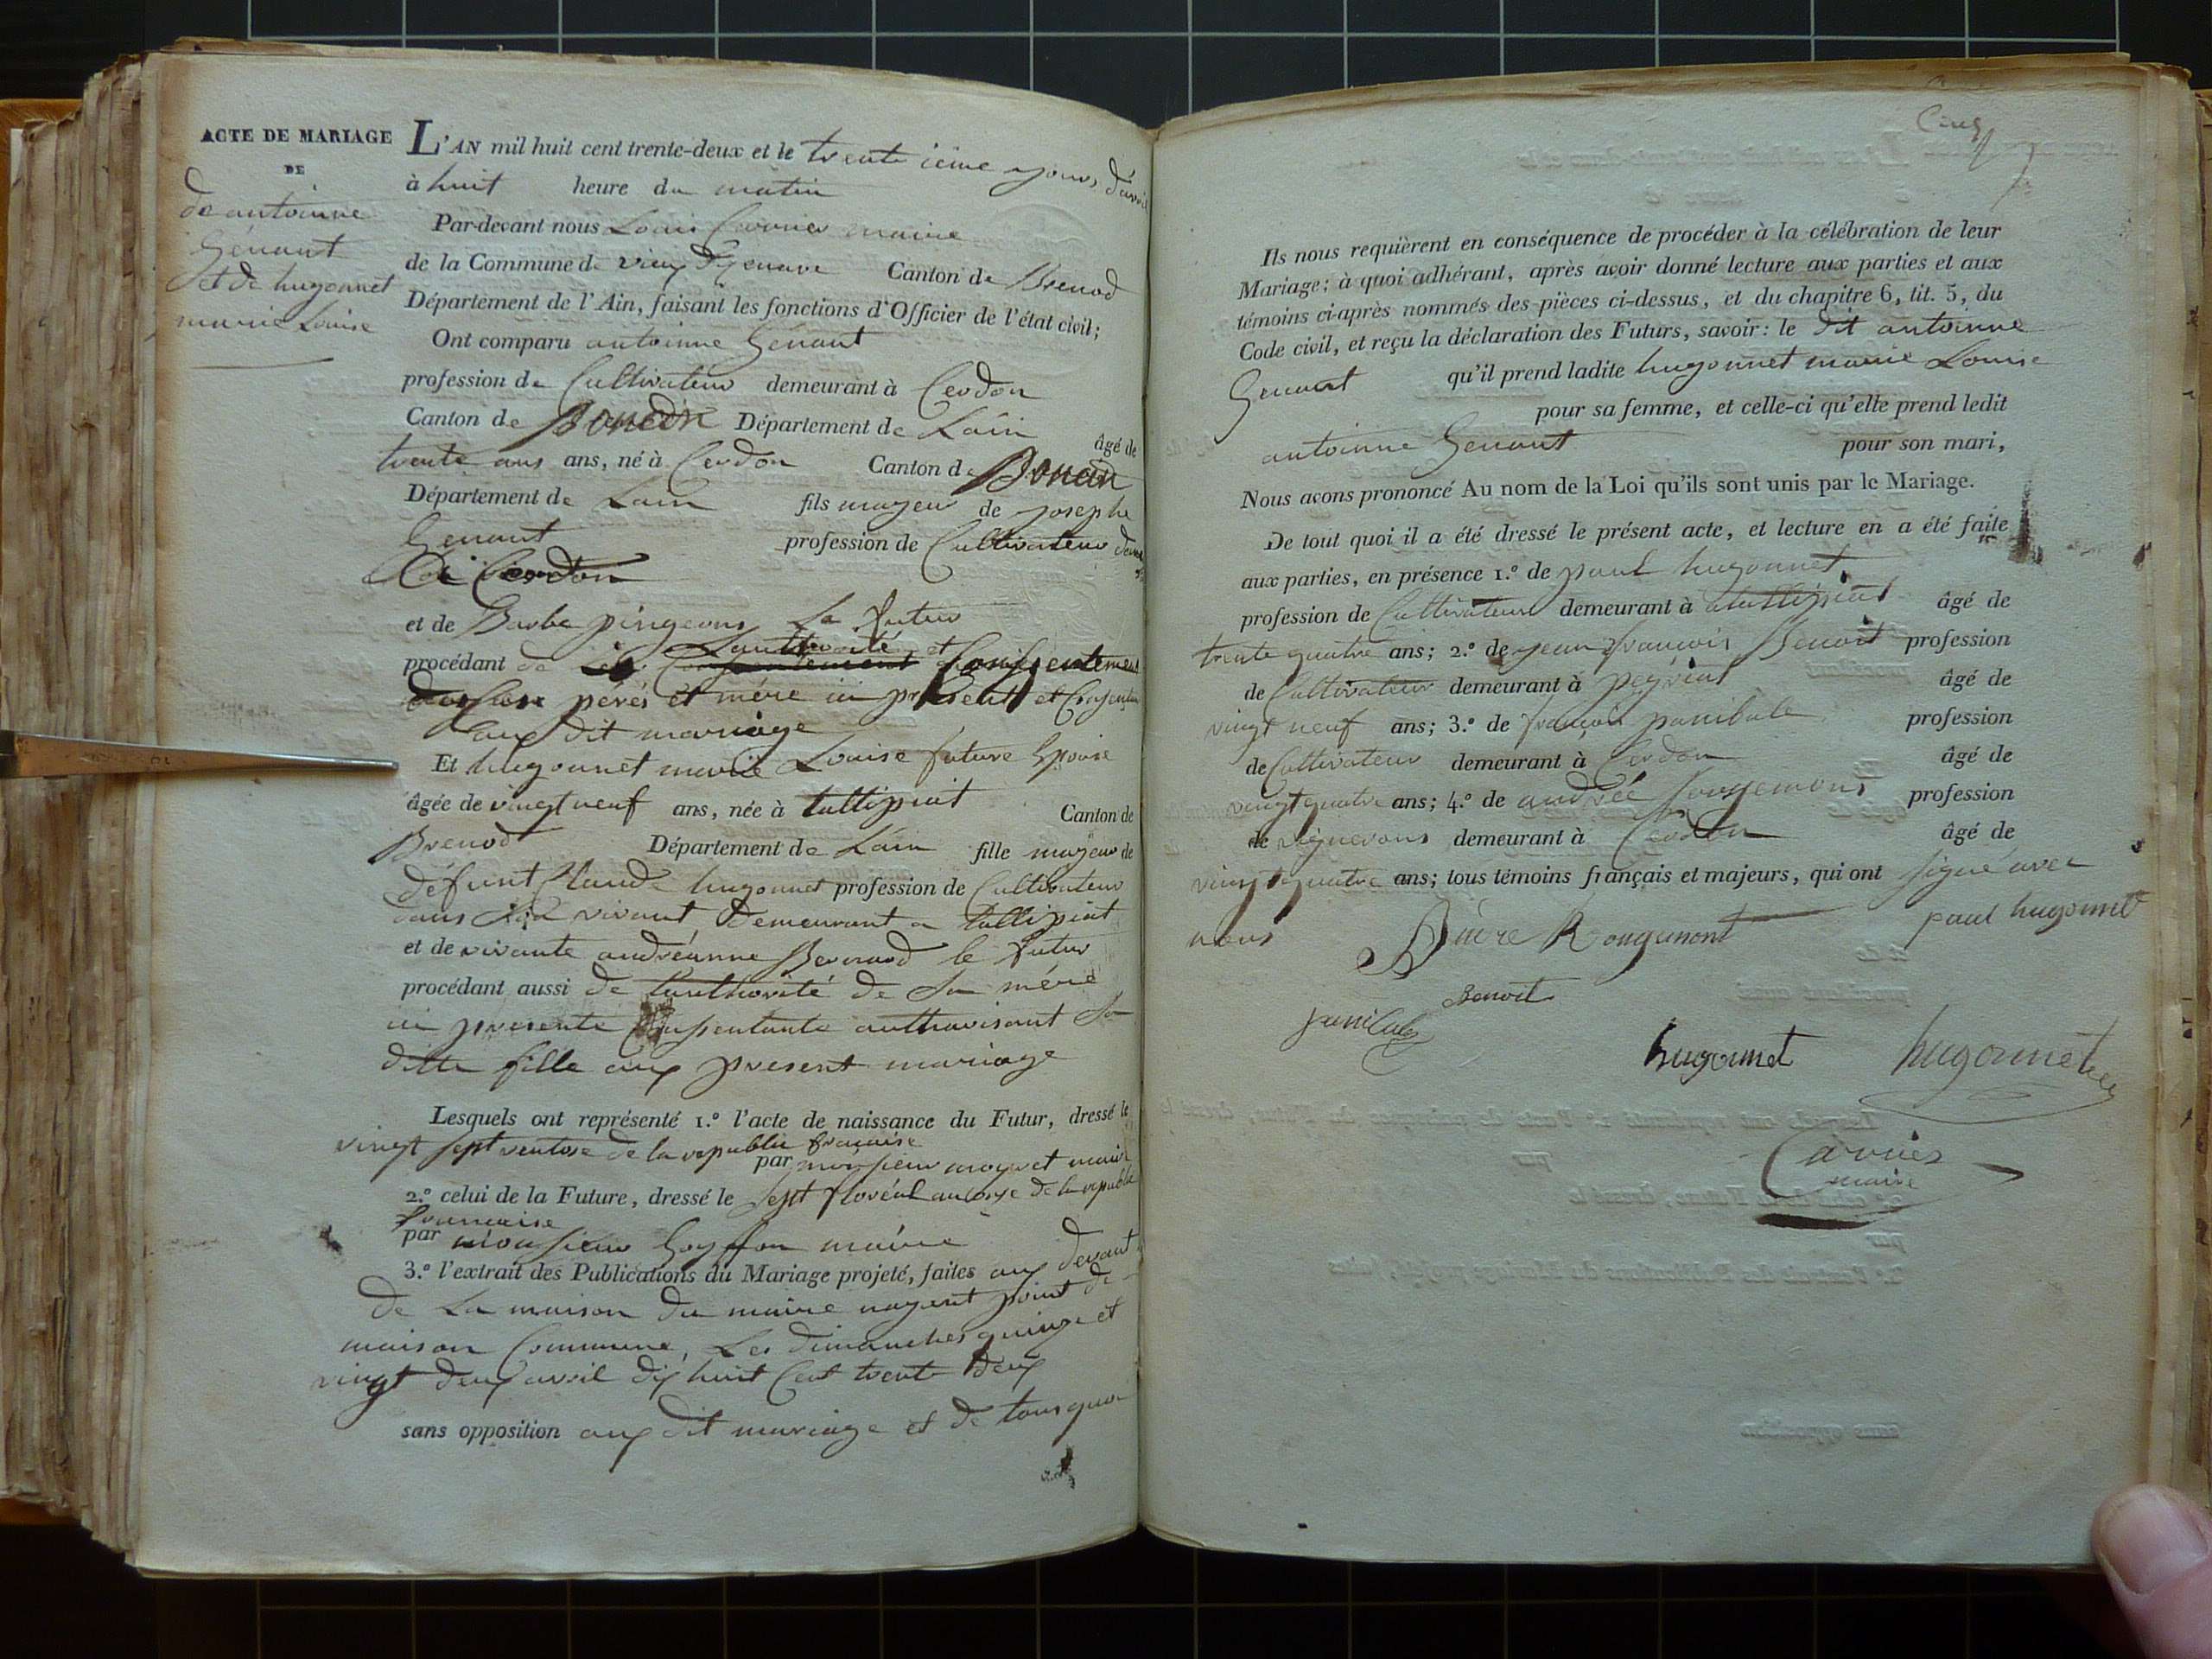 ACTE DE MARIAGE
DE
de antoinne
Génant
et de hugonnet
marie Louise
L'AN mil huit cent trente-deux et le trente ieme jours d'avril
à huit heure du matin
Par-devant nous Louis Carrier maire
de la Commune de vieux d'Izenave Canton de Brenod
Département de l'Ain, faisant les fonctions d'Officier de l'état civil;
Ont comparu antoinne Génant
profession de Cultivateur demeurant à Cerdon
Canton de Poncin Département de Lain âgé de
trente ans ans, né à Cerdon Canton de Poncin
Département de Lain fils majeur de josephe
Genant profession de Cultivateur
a Cerdon
et de Barbe pingeon Le futur
procédant de Lauthorité et Consentement
pere et mére ici present et
aux dit mariage
Et hugonnet marie Louise future Epouse
âgée de vingt neuf ans, née à tallipiat Canton de
Brenod Département de Lain fille majeur de
défunt Claude hugonnet profession de Cultivateur
dans son vivant demeurant a tallipiat
et de vivante andréanne Bernard le futur
procédant aussi de lauthorité de sa mére
ici presente Consentante authorisant sa
ditte fille aux present mariage
Lesquels ont représenté 1.º l'acte de naissance du Futur, dressé le
vingt sept ventose de la republic francaise
par monsieur moyret maire
2.º celui de la Future, dressé le sept floréal an onze de la republic
francaise
par monsieur Goyffon maire
3.º l'extrait des Publications du Mariage projeté, faites aux devant
de La maison du maire nayent point de
maison Commune, Les dimanches quinze et
vingt deux avril dix huit Cent trente deux
sans opposition aux dit mariage et de tous quoi
Cinq
Ils nous requièrent en conséquence de procéder à la célébration de leur
Mariage; à quoi adhérant, après avoir donné lecture aux parties et aux
témoins ci-après nommés des pièces ci-dessus, et du chapitre 6, tit. 5, du
Code civil, et reçu la déclaration des Futurs, savoir: le dit antoinne
Genant qu'il prend ladite hugonnet marie Louise
pour sa femme, et celle-ci qu'elle prend ledit
antoinne Genant pour son mari,
Nous avons prononcé Au nom de la Loi qu'ils sont unis par le Mariage.
De tout quoi il a été dressé le présent acte, et lecture en a été faite
aux parties, en présence 1.º de paul hugonnet
profession de Cultivateur demeurant à tallipiat âgé de
trente quatre ans; 2.º de jean francois Benoit profession
de Cultivateur demeurant à peyriat âgé de
vingt neuf ans; 3.º de francois panibale profession
de Cultivateur demeurant à Cerdon âgé de
vingt quatre ans; 4.º de andrée rougemont profession
de vignerons demeurant à Cerdon âgé de
vingt quatre ans; tous témoins français et majeurs, qui ont signé avec
nous
Andre Rougemont paul hugonnet
Benoit
hugonnet hugonnet
Carrier
maire